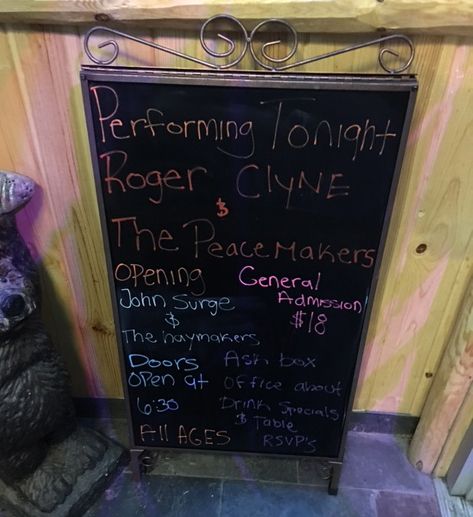 Performing Tonight
Roger Clyne
$
The Peacemakers
Opening
John Surge
$
The haymakers
General
Admission
$18
Doors
open at
6:30
All AGES
Ask box
office about
Drink Specials
$ Table
RSVP's